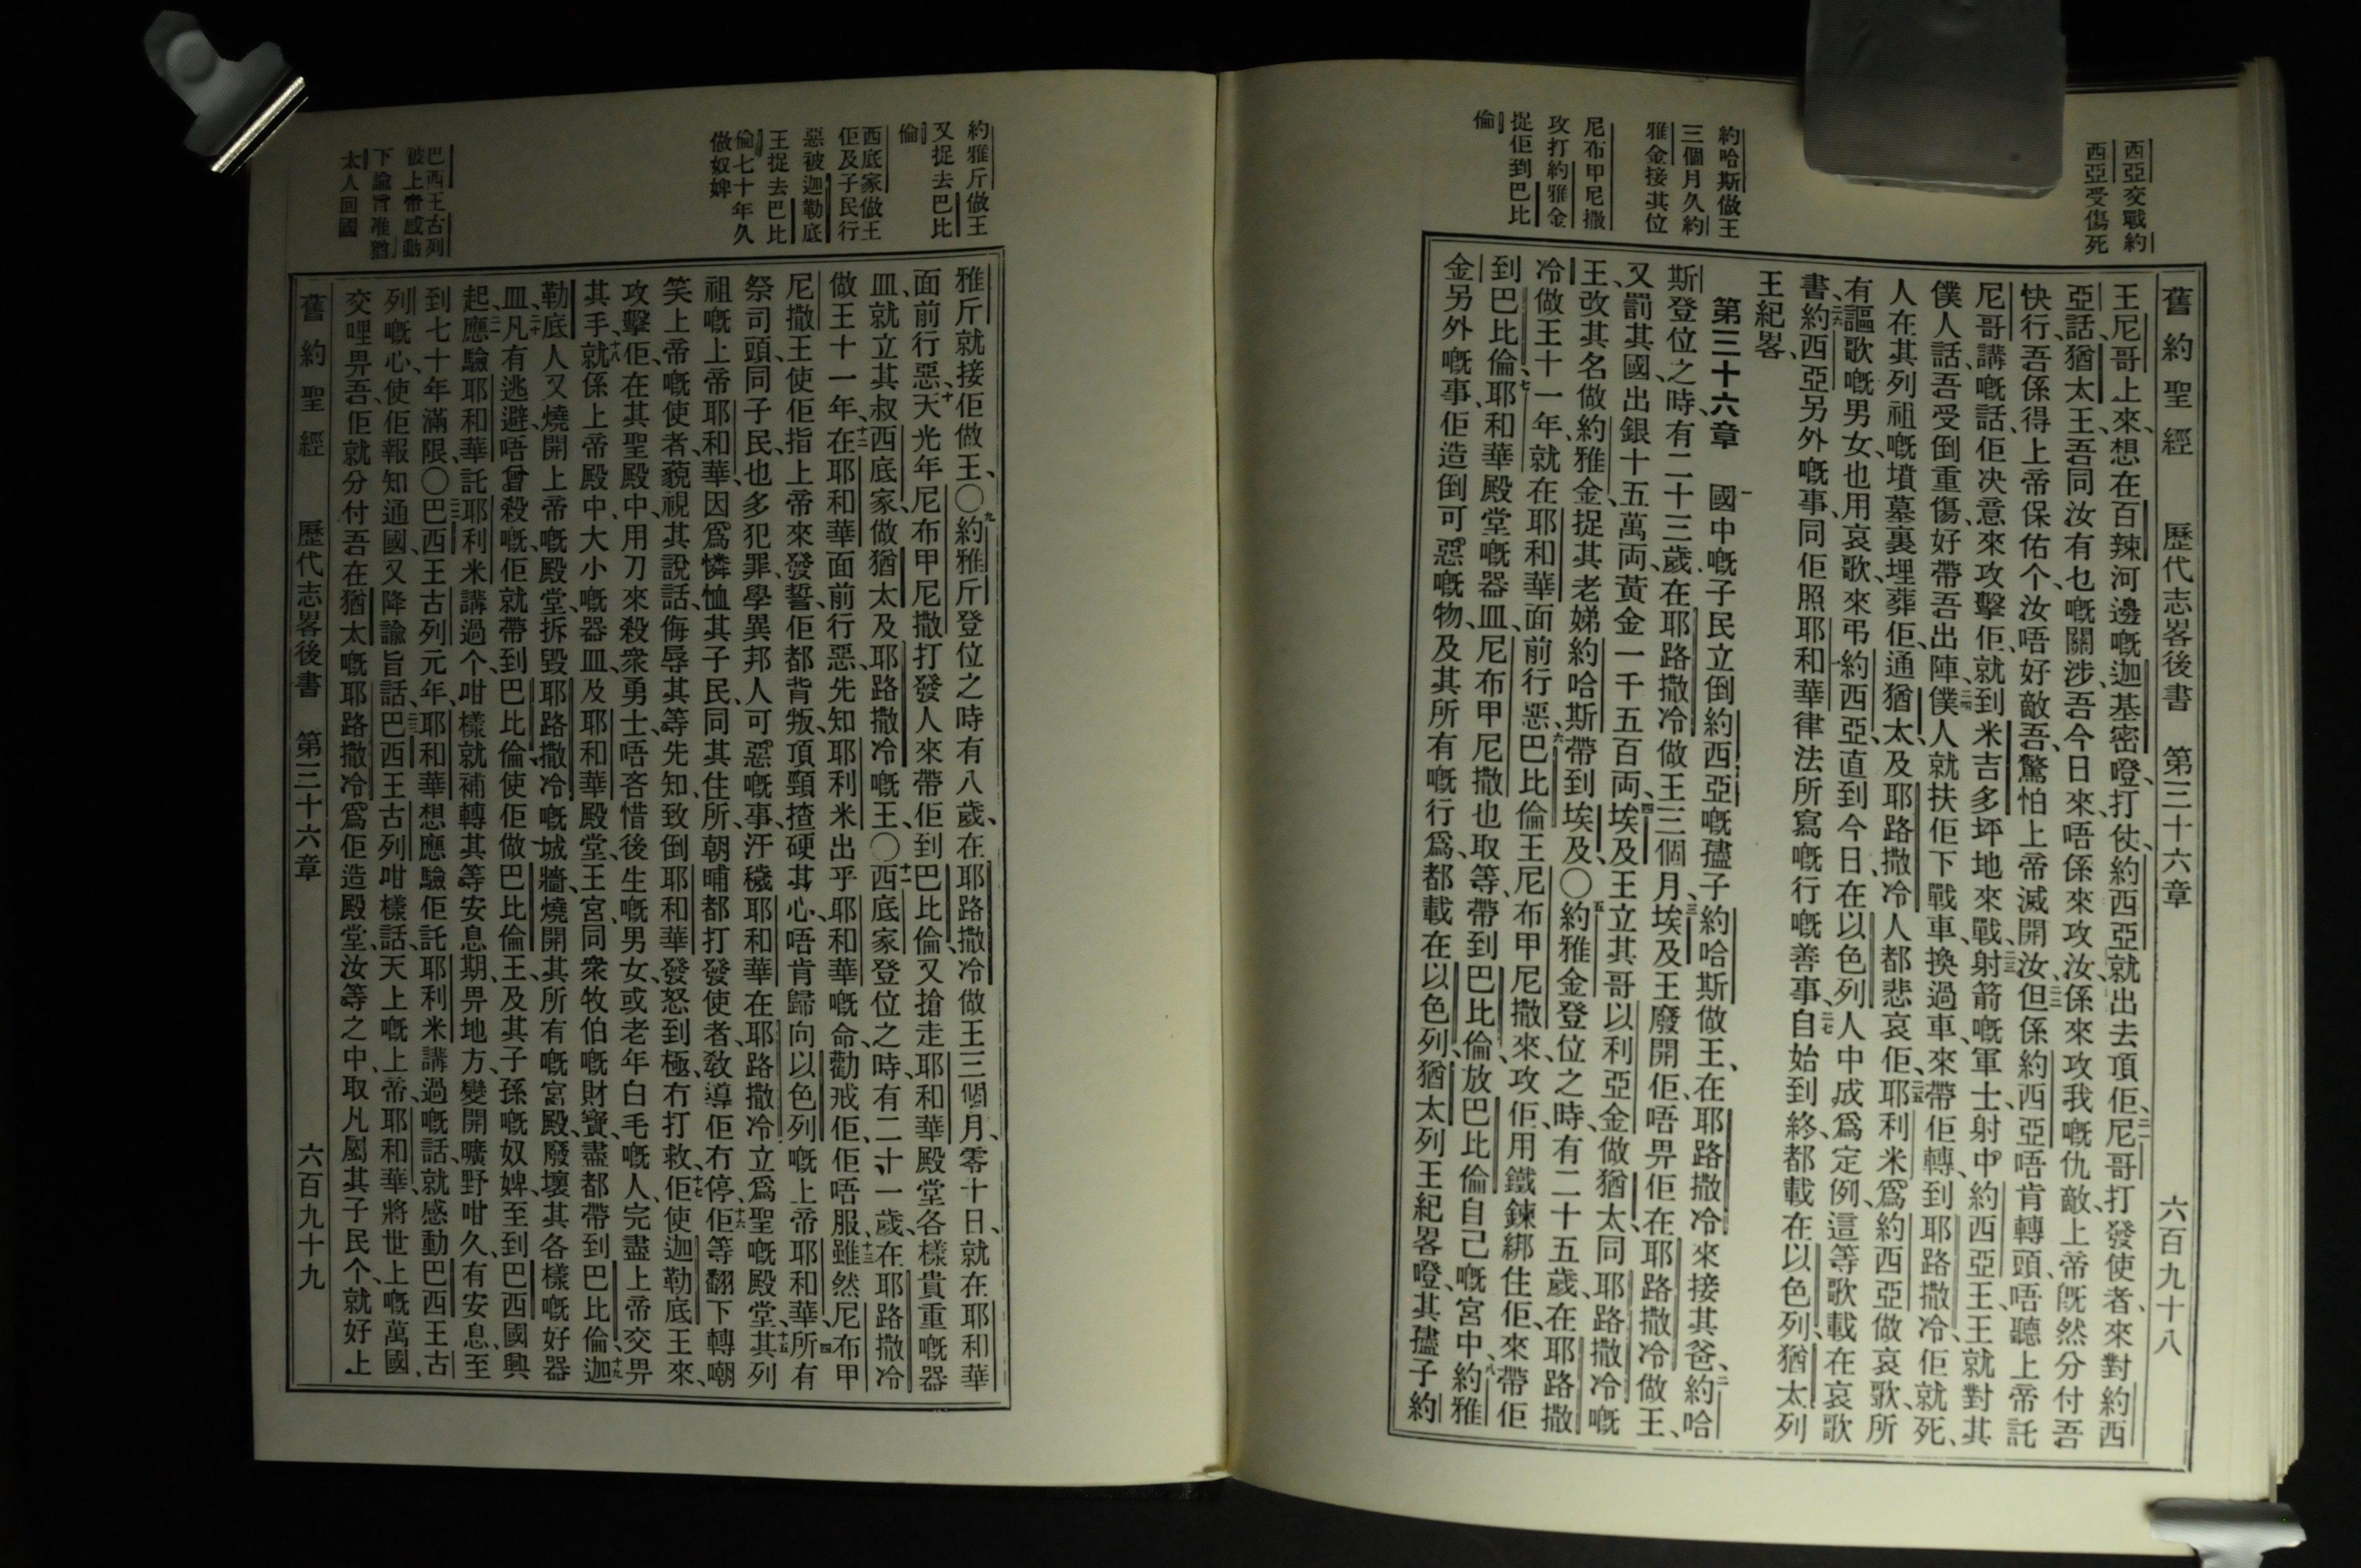 西亞交戰約
西亞受傷死
約哈斯做王
三個月久約
雅金接其位
尼布甲尼撒
攻打約雅金
捉佢到巴比
倫
舊約聖經 歷代志畧後書 第三十六章 六百九十八
王尼哥上來、想在百辣河邊嘅迦基密、打仗、約西亞就出去頂佢、尼哥打發使者、來對約西
亞話、猶太王、吾同汝有乜嘅關涉、吾今日來、唔係來攻汝、係來攻我嘅仇敵、上帝旣然分付吾
快行、吾係得上帝保佑个、汝唔好敵吾、驚怕上帝滅開汝、但係約西亞唔肯轉頭、唔聽上帝託
尼哥講嘅話、佢决意來攻擊佢、就到米吉多坪地來戰、射箭嘅軍士、射中約西亞王、王就對其
僕人話、吾受倒重傷、好帶吾出陣、僕人就扶佢下戰車、換過車來帶佢轉到耶路撒冷、佢就死、
人在其列祖嘅墳墓裏、埋葬佢、通猶太、及耶路撒冷人都悲哀佢、耶利米爲約西亞做哀歌、所
有謳歌嘅男女、也用哀歌、來弔約西亞、直到今日、在以色列人中成爲定例、這等歌載在哀歌
書、約西亞另外嘅事、同佢照耶和華律法所寫嘅行嘅善事、自始到終、都載在以色列、猶太列
王紀畧、
第三十六章 國中嘅子民立倒約西亞嘅孻子約哈斯做王、在耶路撒冷來接其爸、約哈
斯登位之時、有二十三歲、在耶路撒冷做王三個月、埃及王廢開佢、唔畀佢在耶路撒冷做王、
又罰其國、出銀十五萬両、黃金一千五百両、埃及王立其哥以利亞金做猶太、同耶路撒冷嘅
王、改其名做約雅金、捉其老娣約哈斯帶到埃及、〇約雅金登位之時、有二十五歲、在耶路撒
冷做王十一年、就在耶和華面前行惡、巴比倫王尼布甲尼撒來、攻佢、用鐵鍊綁住佢、來帶佢
到巴比倫、耶和華殿堂嘅器皿、尼布甲尼撒也取等、帶到巴比倫、放巴比倫自己嘅宮中、約雅
金另外嘅事、佢造倒可惡嘅物、及其所有嘅行爲、都載在以色列、猶太列王紀畧、其孻子約
約雅斤做王
又捉去巴比
倫
西底家做王
佢及子民行
惡被迦勒底
王捉去巴比
倫七十年久
做奴婢
巴西王古列
被上帝感動
下諭旨准猶
太人回國
雅斤就接佢做王、〇約雅斤登位之時有八歲、在耶路撒冷做王三個月、零十日、就在耶和華
面前行惡、天光年尼布甲尼撒打發人來帶佢到巴比倫、又搶走耶和華殿堂各樣貴重嘅器
皿、就立其叔西底家、做猶太及耶路撒冷嘅王、〇西底家登位之時、有二十一歲、在耶路撒冷
做王十一年、在耶和華面前行惡、先知耶利米出乎耶和華嘅命、勸戒佢、佢唔服、雖然尼布甲
尼撒王使佢指上帝來發誓、佢都背叛、頂頸揸硬其心、唔肯歸向以色列嘅上帝耶和華、所有
祭司頭、同子民、也多犯罪、學異邦人可惡嘅事、汙穢耶和華在耶路撒冷立爲聖嘅殿堂、其列
祖嘅上帝耶和華、因爲憐恤其子民、同其住所、朝晡都打發使者、敎導佢冇停、佢等翻下轉嘲
笑上帝嘅使者、藐視其說話、侮辱其等先知、致倒耶和華發怒到極、冇打救、佢使迦勒底王來、
攻擊佢、在其聖殿中、用刀來殺衆勇士、唔吝惜後生嘅男女、或老年白毛嘅人、完盡上帝交畀
其手、就係上帝殿中、大小嘅器皿、及耶和華殿堂、王宮、同衆牧伯嘅財寶、盡都帶到巴比倫、迦
勒底人又燒開上帝嘅殿堂、拆毀耶路撒冷嘅城牆、燒開其所有嘅宮殿、廢壞其各樣嘅好器
皿、凡有逃避、唔曾殺嘅、佢就帶到巴比倫、使佢做巴比倫王、及其子孫嘅奴婢、至到巴西國興
起、應驗耶和華託耶利米講過个、咁樣就補轉其等安息期、畀地方變開曠野咁久、有安息、至
到七十年滿限、〇巴西王古列元年、耶和華想應驗佢託耶利米講過嘅話、就感動巴西王古
列嘅心、使佢報知通國、又降諭旨話、巴西王古列咁樣話、天上嘅上帝、耶和華將世上嘅萬國、
交哩畀吾、佢就分付吾在猶太嘅耶路撒冷、爲佢造殿堂、汝等之中、取凡屬其子民个、就好上
舊約聖經 歷代志畧後書 第三十六章 六百九十九